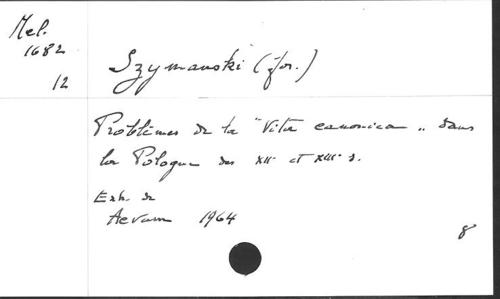 Mel.
1682
12
Szymanski (Jos.)
Problèmes de la "Vita canonica" dans
la Pologne des XIIe et XIIIe s.
Extr. de
Aevum 1964
8